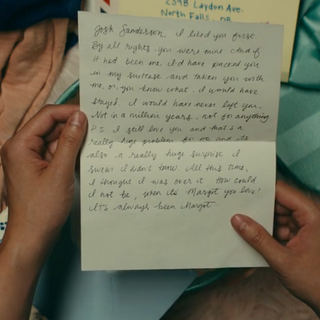 2398 Laydon Ave.
North Falls, OR
Josh Sanderson, I liked you first.
By all rights, you were mine. And if
it had been me, I'd have packed you
in my suitcase and taken you with
me, or, you know what, I would have
stayed. I would have never left you.
Not in a million years, not for anything.
P.S. I still love you and that's a
really huge problem for me and its
also a really huge surprise. I
swear I didn't know. All this time,
I thought I was over it. How could
I not be, when its Margot you love?
It's always been Margot.